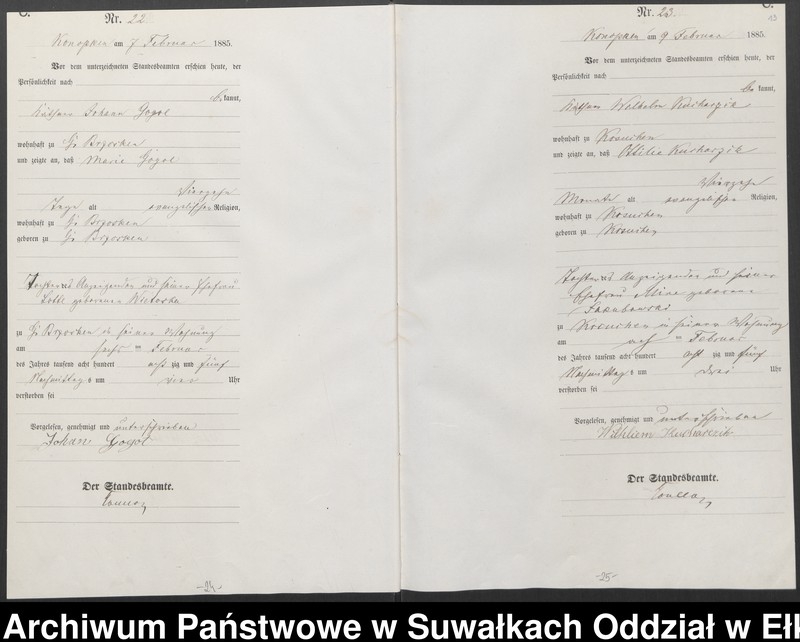 C.
Nr. 22.
Konopken am 7 Februar 1885.
Vor dem unterzeichneten Standesbeamten erschien heute, der
Persönlichkeit nach
be kannt,
Käthner Johann Gogol
wohnhaft zu Gr Brzosken
und zeigte an, daß Marie Gogol
Vierzehn
Tage alt evangelischer Religion,
wohnhaft zu Gr Brzosken
geboren zu Gr Brzosken
Tochter des Anzeigenden und seiner Ehefrau
Lotte geborenen
zu Gr Brzosken in seiner Wohnung
am sechs ten Februar
des Jahres tausend acht hundert acht zig und fünf
Nachmittag s um drei Uhr
verstorben sei
Vorgelesen, genehmigt und unterschrieben
Johan Gogol
Der Standesbeamte.
-24-
C.
13
Nr. 23.
Konopken am 9 Februar 1885.
Vor dem unterzeichneten Standesbeamten erschien heute, der
Persönlichkeit nach
be kannt,
Käthner Wilhelm Kucharzik
wohnhaft zu Kosuchen
und zeigte an, daß Ottilie Kucharzik
Vierzehn
Monate alt evangelischer Religion,
wohnhaft zu Kosuchen
geboren zu Kosuchen
Tochter des Anzeigenden und seiner
Ehefrau Mine geborene
Jakubowski
zu Kosuchen in seiner Wohnung
am acht ten Februar
des Jahres tausend acht hundert acht zig und fünf
Nachmittag s um drei Uhr
verstorben sei
Vorgelesen, genehmigt und unterschrieben
Wilhliem Kucharczik
Der Standesbeamte.
-25-
Archiwum Państwowe w Suwałkach Oddział w Eł